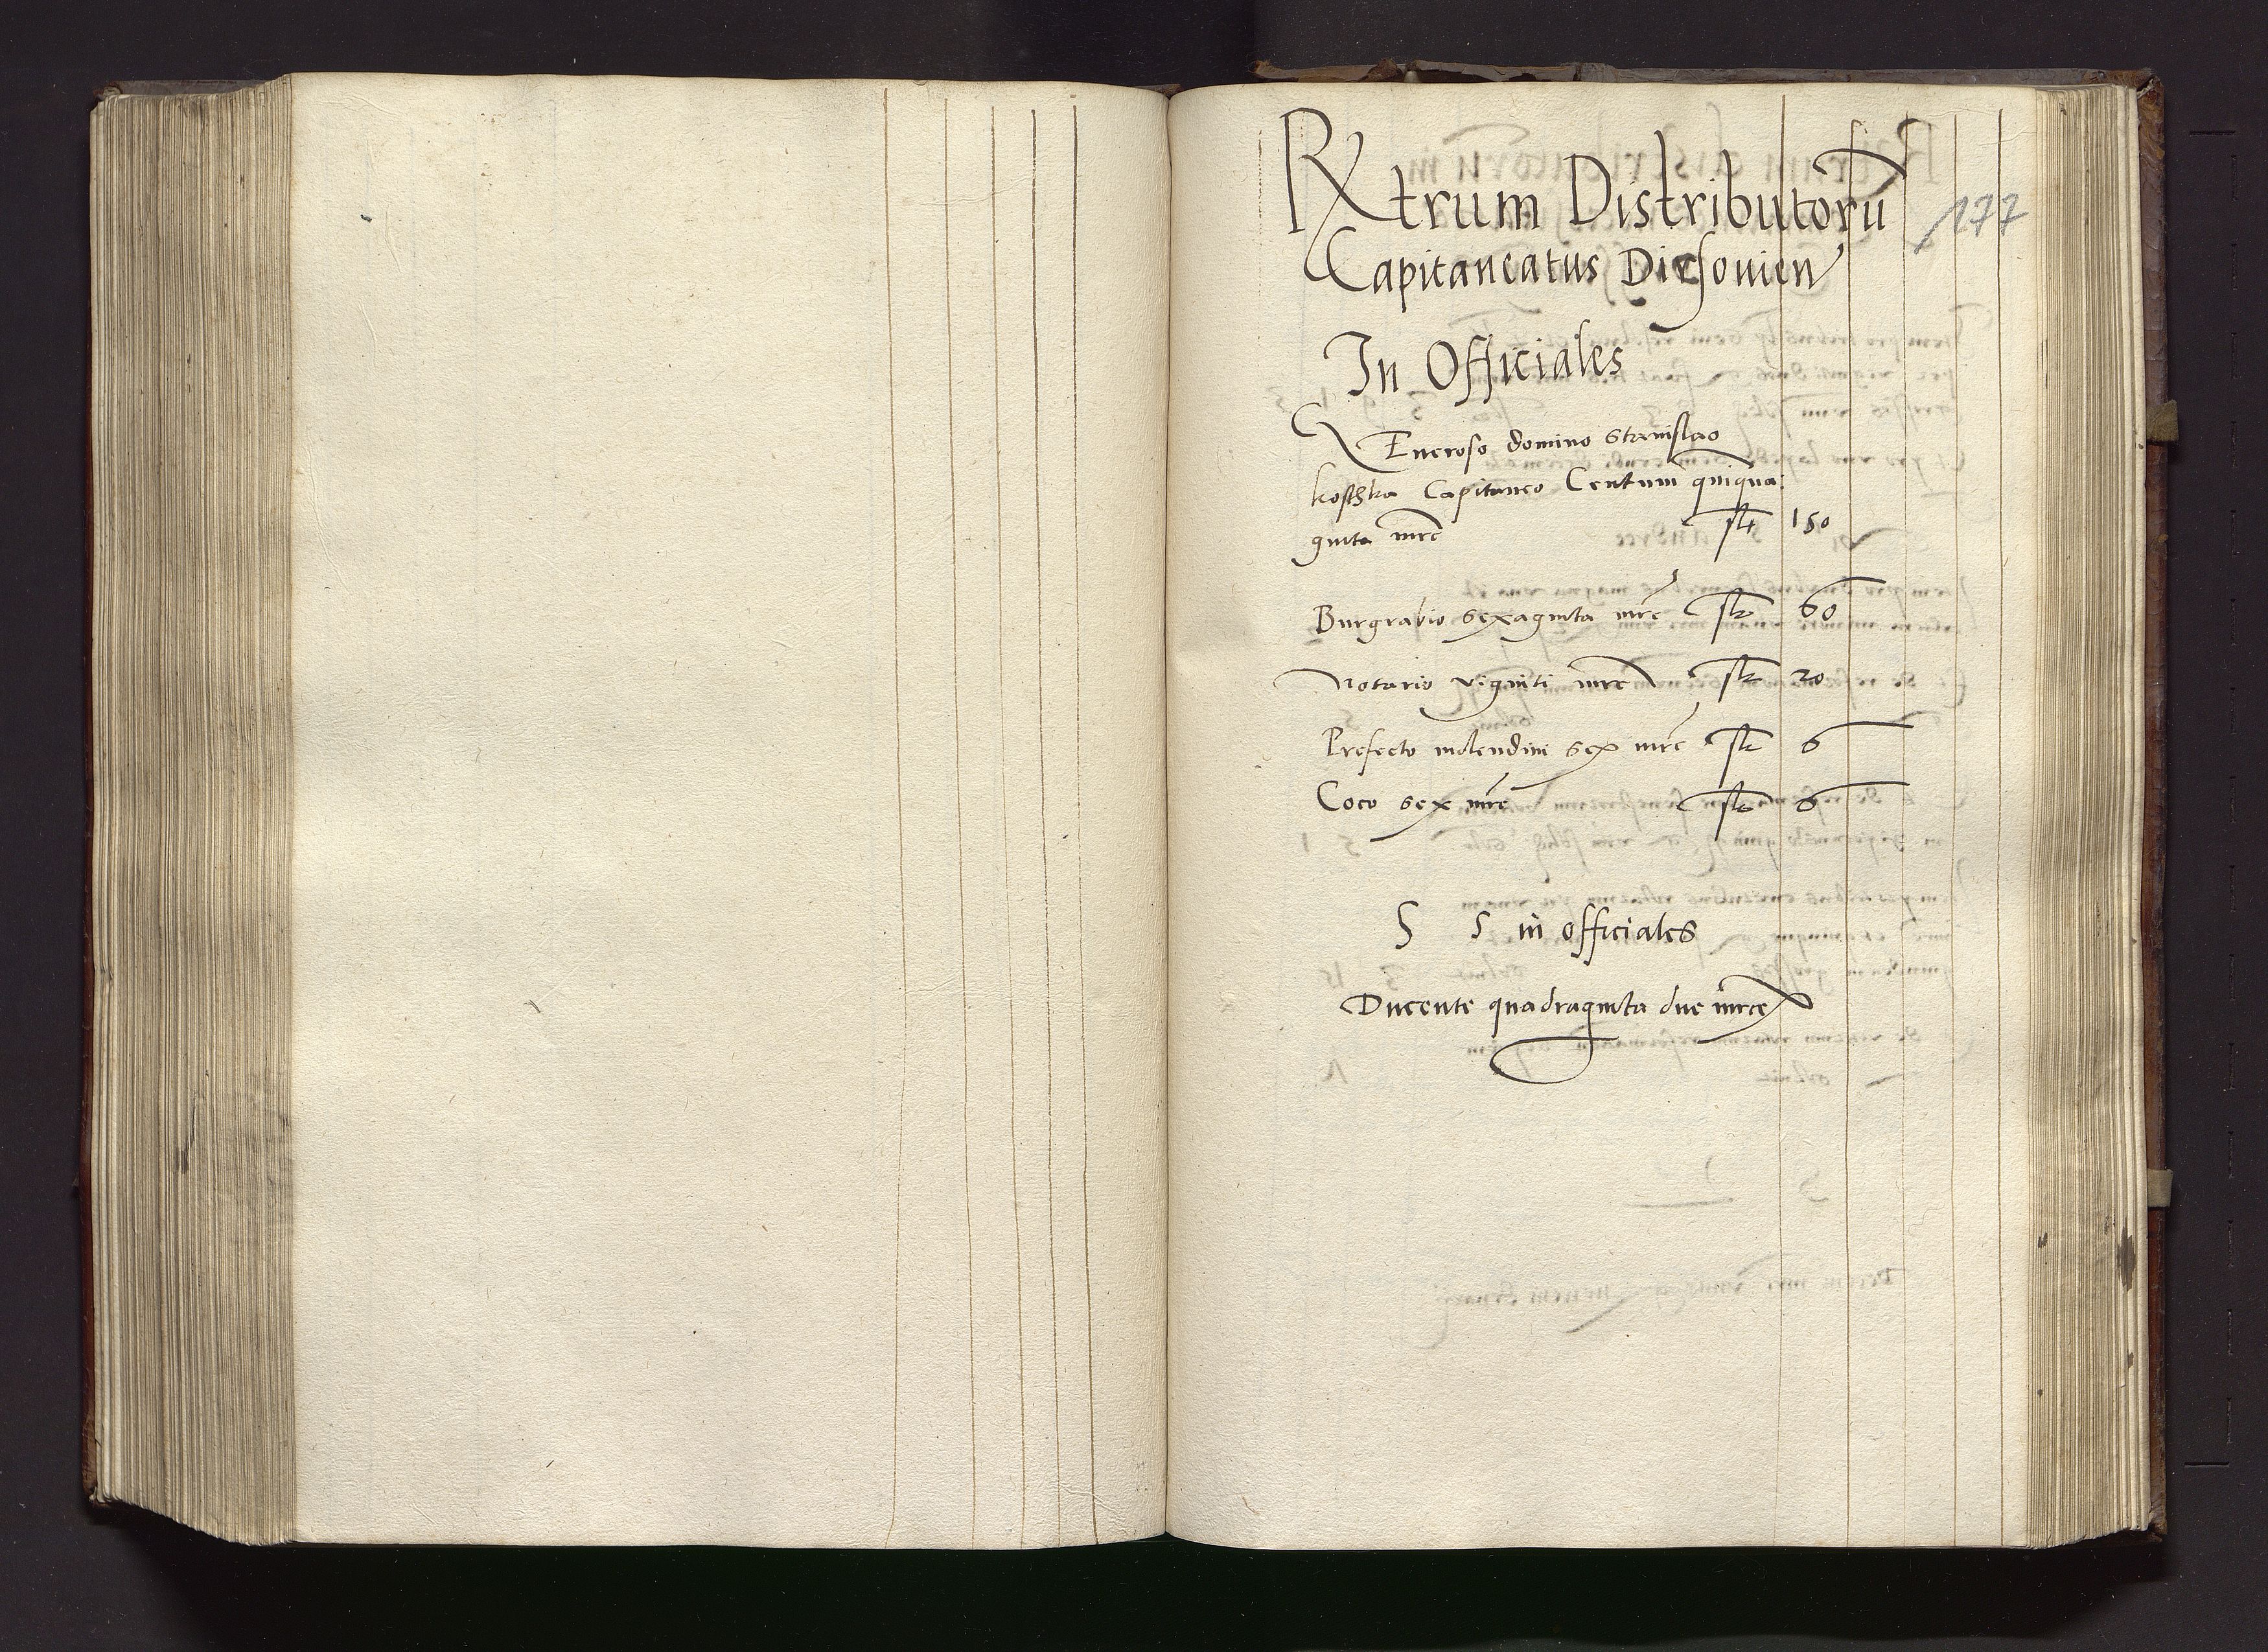 Rtrum Distributorū
177
Capitaneatus Dirsouien
In Officiales
Generoso domino Stanislao
kosthka Capitaneo Centum quiqua
ginta mrc 150
Burgrabio sexaginta mrc 60
Notario viginti mrc 20
Prefecto molendini sex mrc 6
Coco sex mrc 6
S S in officiales
Ducente quadraginta due mrce